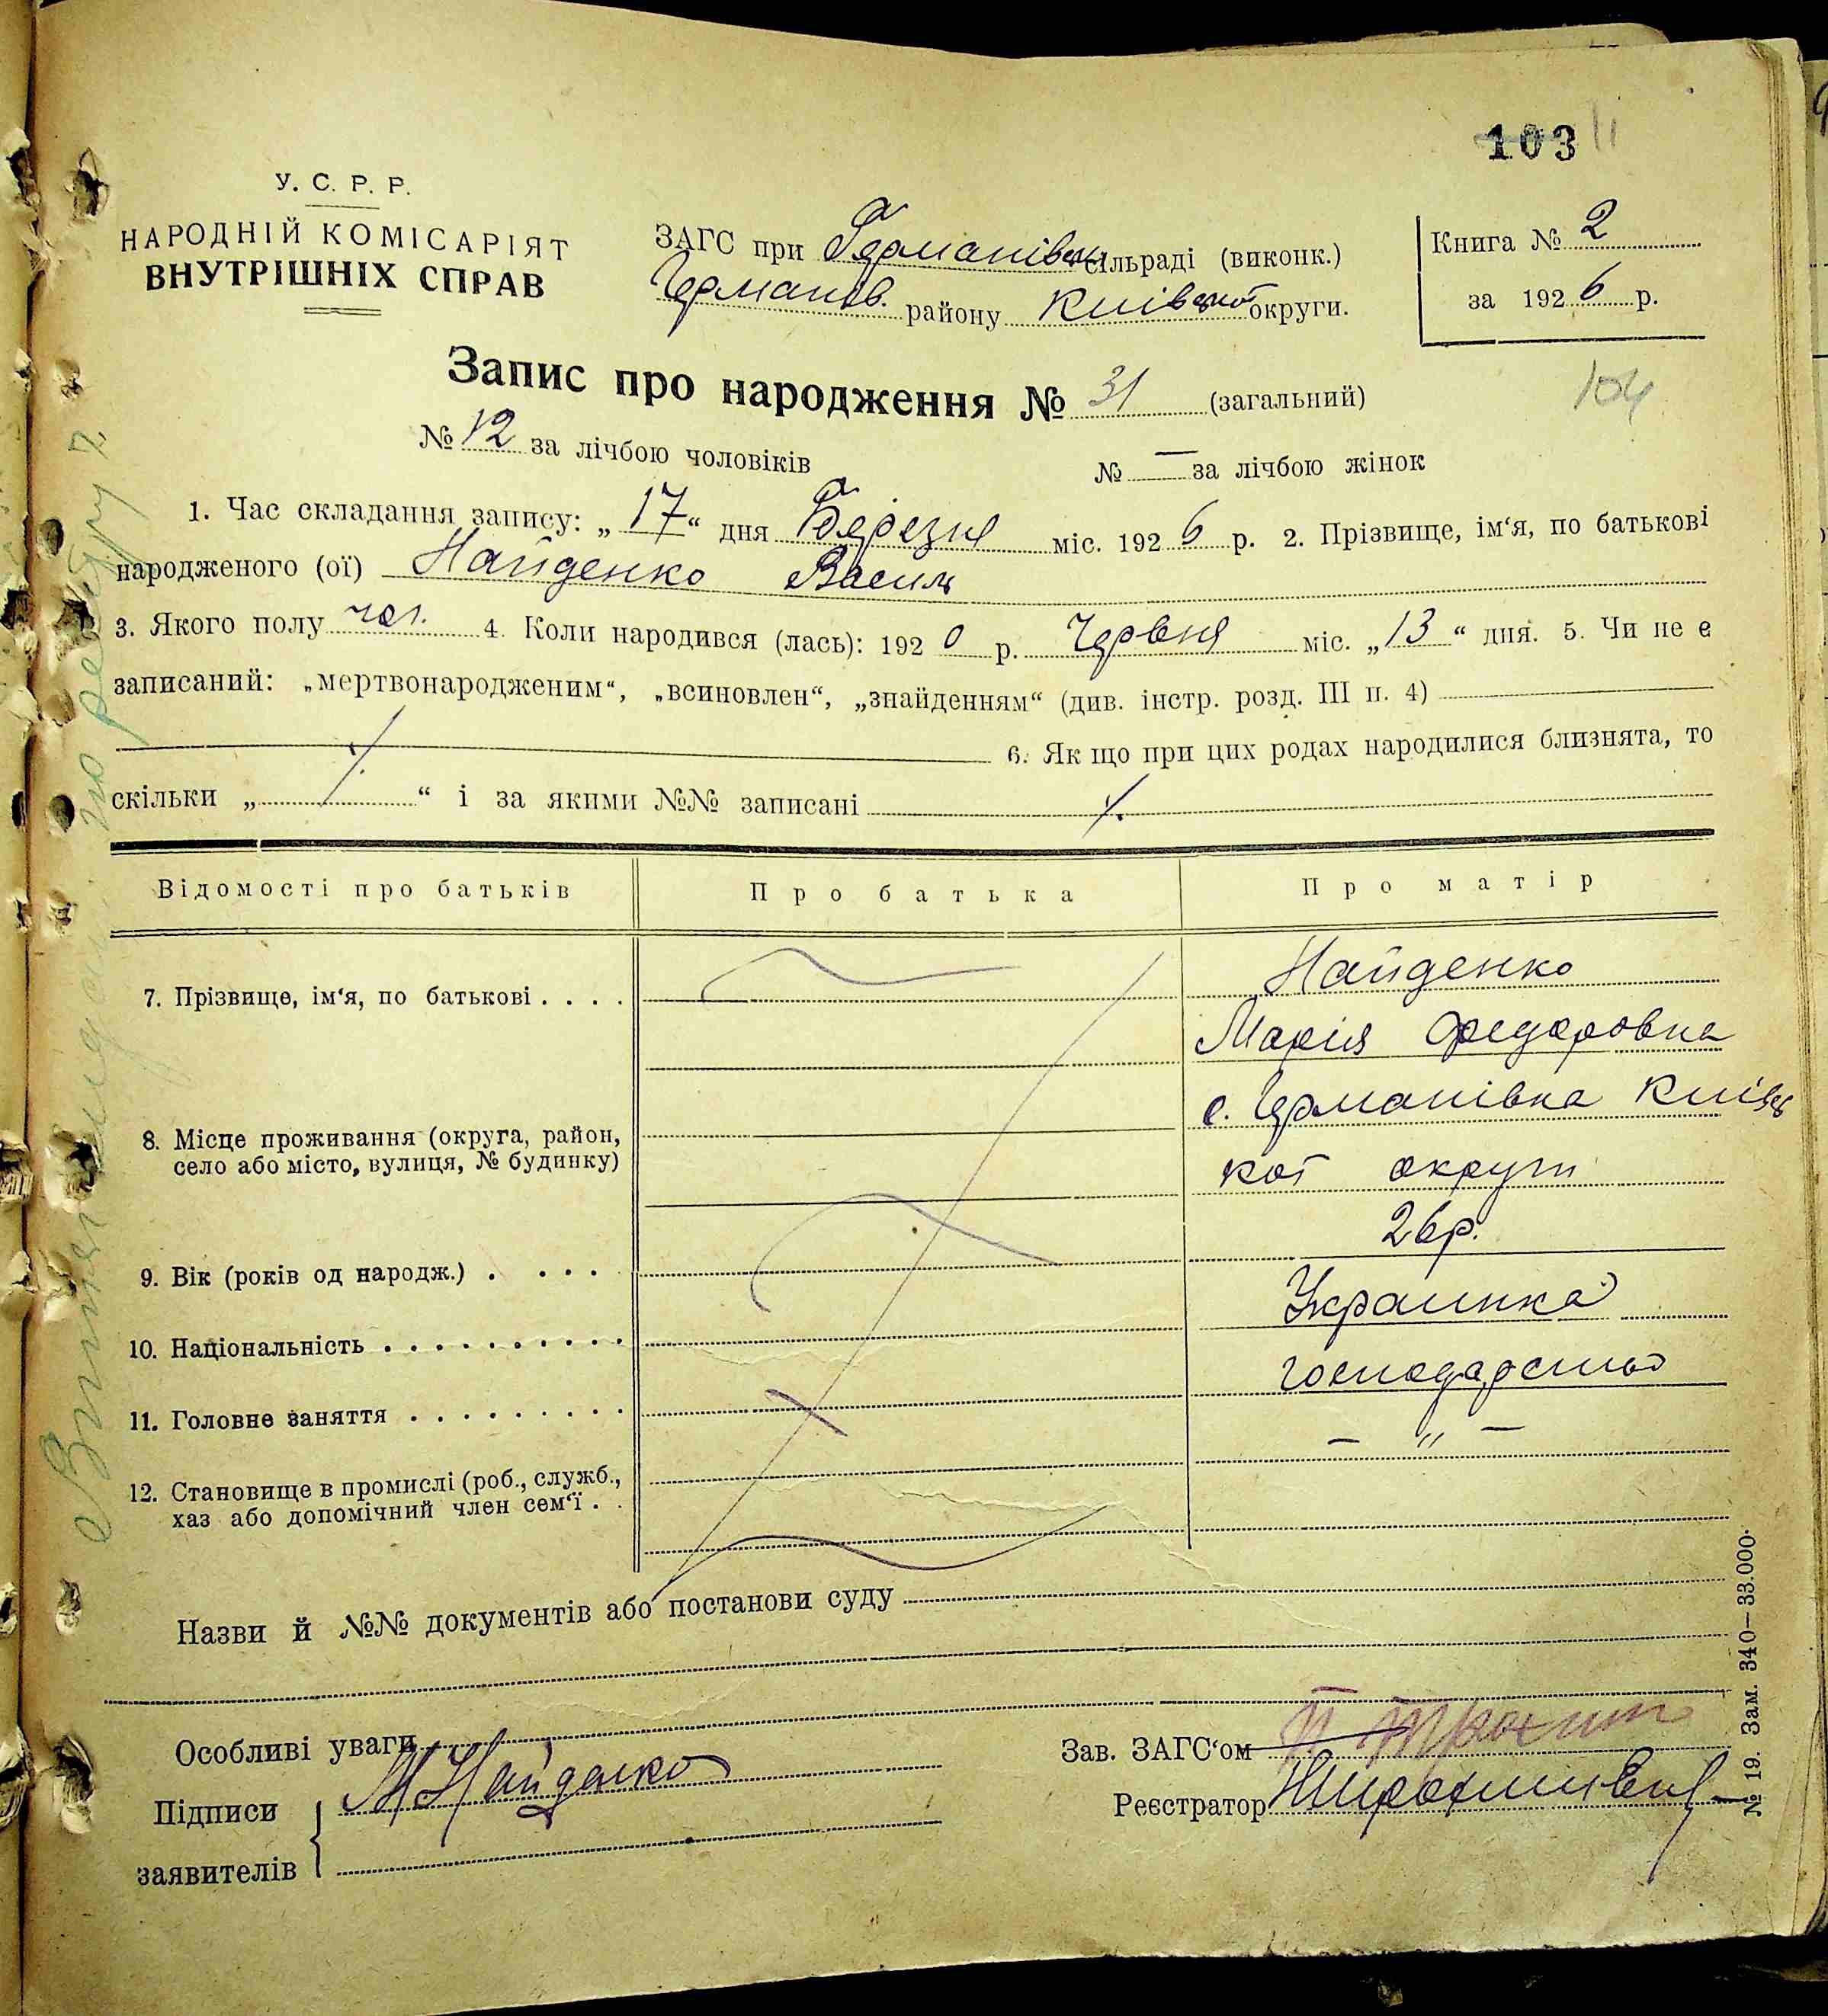 103 11
У. С. Р. Р.
НАРОДНІЙ КОМІСАРІЯТ
ВНУТРІШНІХ СПРАВ
ЗАГС при Германівськ сільраді (виконк.)
Германів. району Киівської округи.
Книга № 2
за 1926 р.
Запис про народження № 31 (загальний)
104
№ 12 за лічбою чоловіків № — за лічбою жінок
1. Час складання запису: „17“ дня Березня міс. 1926 р. 2. Прізвище, ім‘я, по батькові
народженого (ої) Найденко Василь
3. Якого полу чол. 4. Коли народився (лась): 1920 р. Червня міс. „13“ дня. 5. Чи не є
записаний: „мертвонародженим“, „всиновлен“, „знайденням“ (див. інстр. розд. III п. 4)
6. Як що при цих родах народилися близнята, то
скільки „ “ і за якими №№ записані
Відомості про батьків Про батька Про матір
7. Прізвище, ім‘я, по батькові . . . . Найденко
Марія Федоровна
8. Місце проживання (округа, район, с. Германівка Київсь
село або місто, вулиця, № будинку) кої округи
9. Вік (років од народж.) . . . . 26р.
10. Національність . . . . . . . . . . Украинка
11. Головне заняття . . . . . . . . . господарство
12. Становище в промислі (роб., служб., — „ —
хаз або допомічний член сем‘ї . .
Назви й №№ документів або постанови суду
Особливі уваги
Підписи М Найденко
заявителів
Зав. ЗАГС‘ом
Реєстратор
№ 19. Зам. 340—33.000.